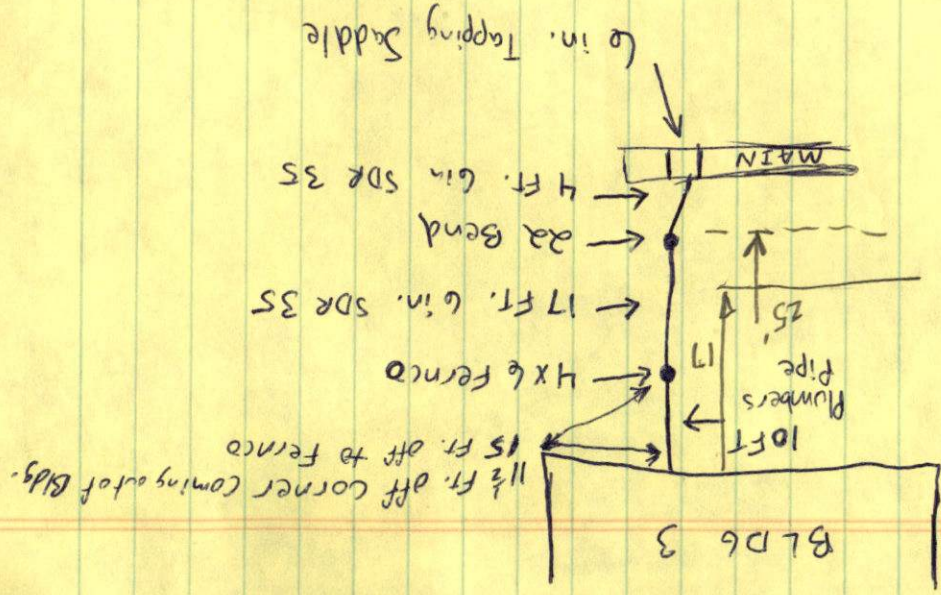 BLDG 3
11 1/2 Ft. off Corner Coming out of Bldg.
15 Ft. off to Fernco
10 FT
Plumbers
Pipe
4 x 6 Fernco
17
17 Ft. 6 in. SDR 35
25'
22 Bend
4 Ft. 6in SDR 35
MAIN
6 in. Tapping Saddle